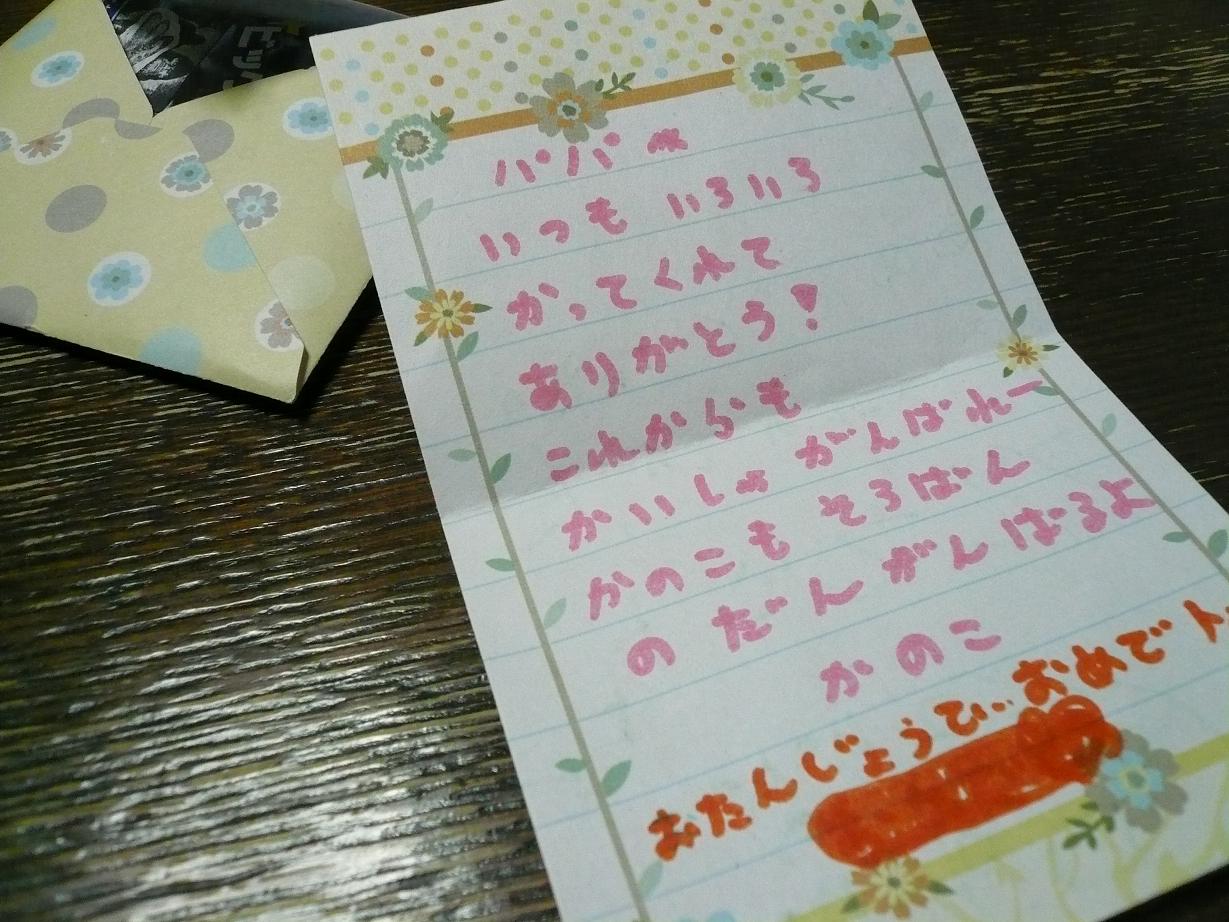 パパへ
いつも いろいろ
かってくれて
ありがとう!
これからも
かいしゃ がんばれー
かのこも そろばん
の だん がんばるよ
かのこ
おたんじょうひ゛おめでと